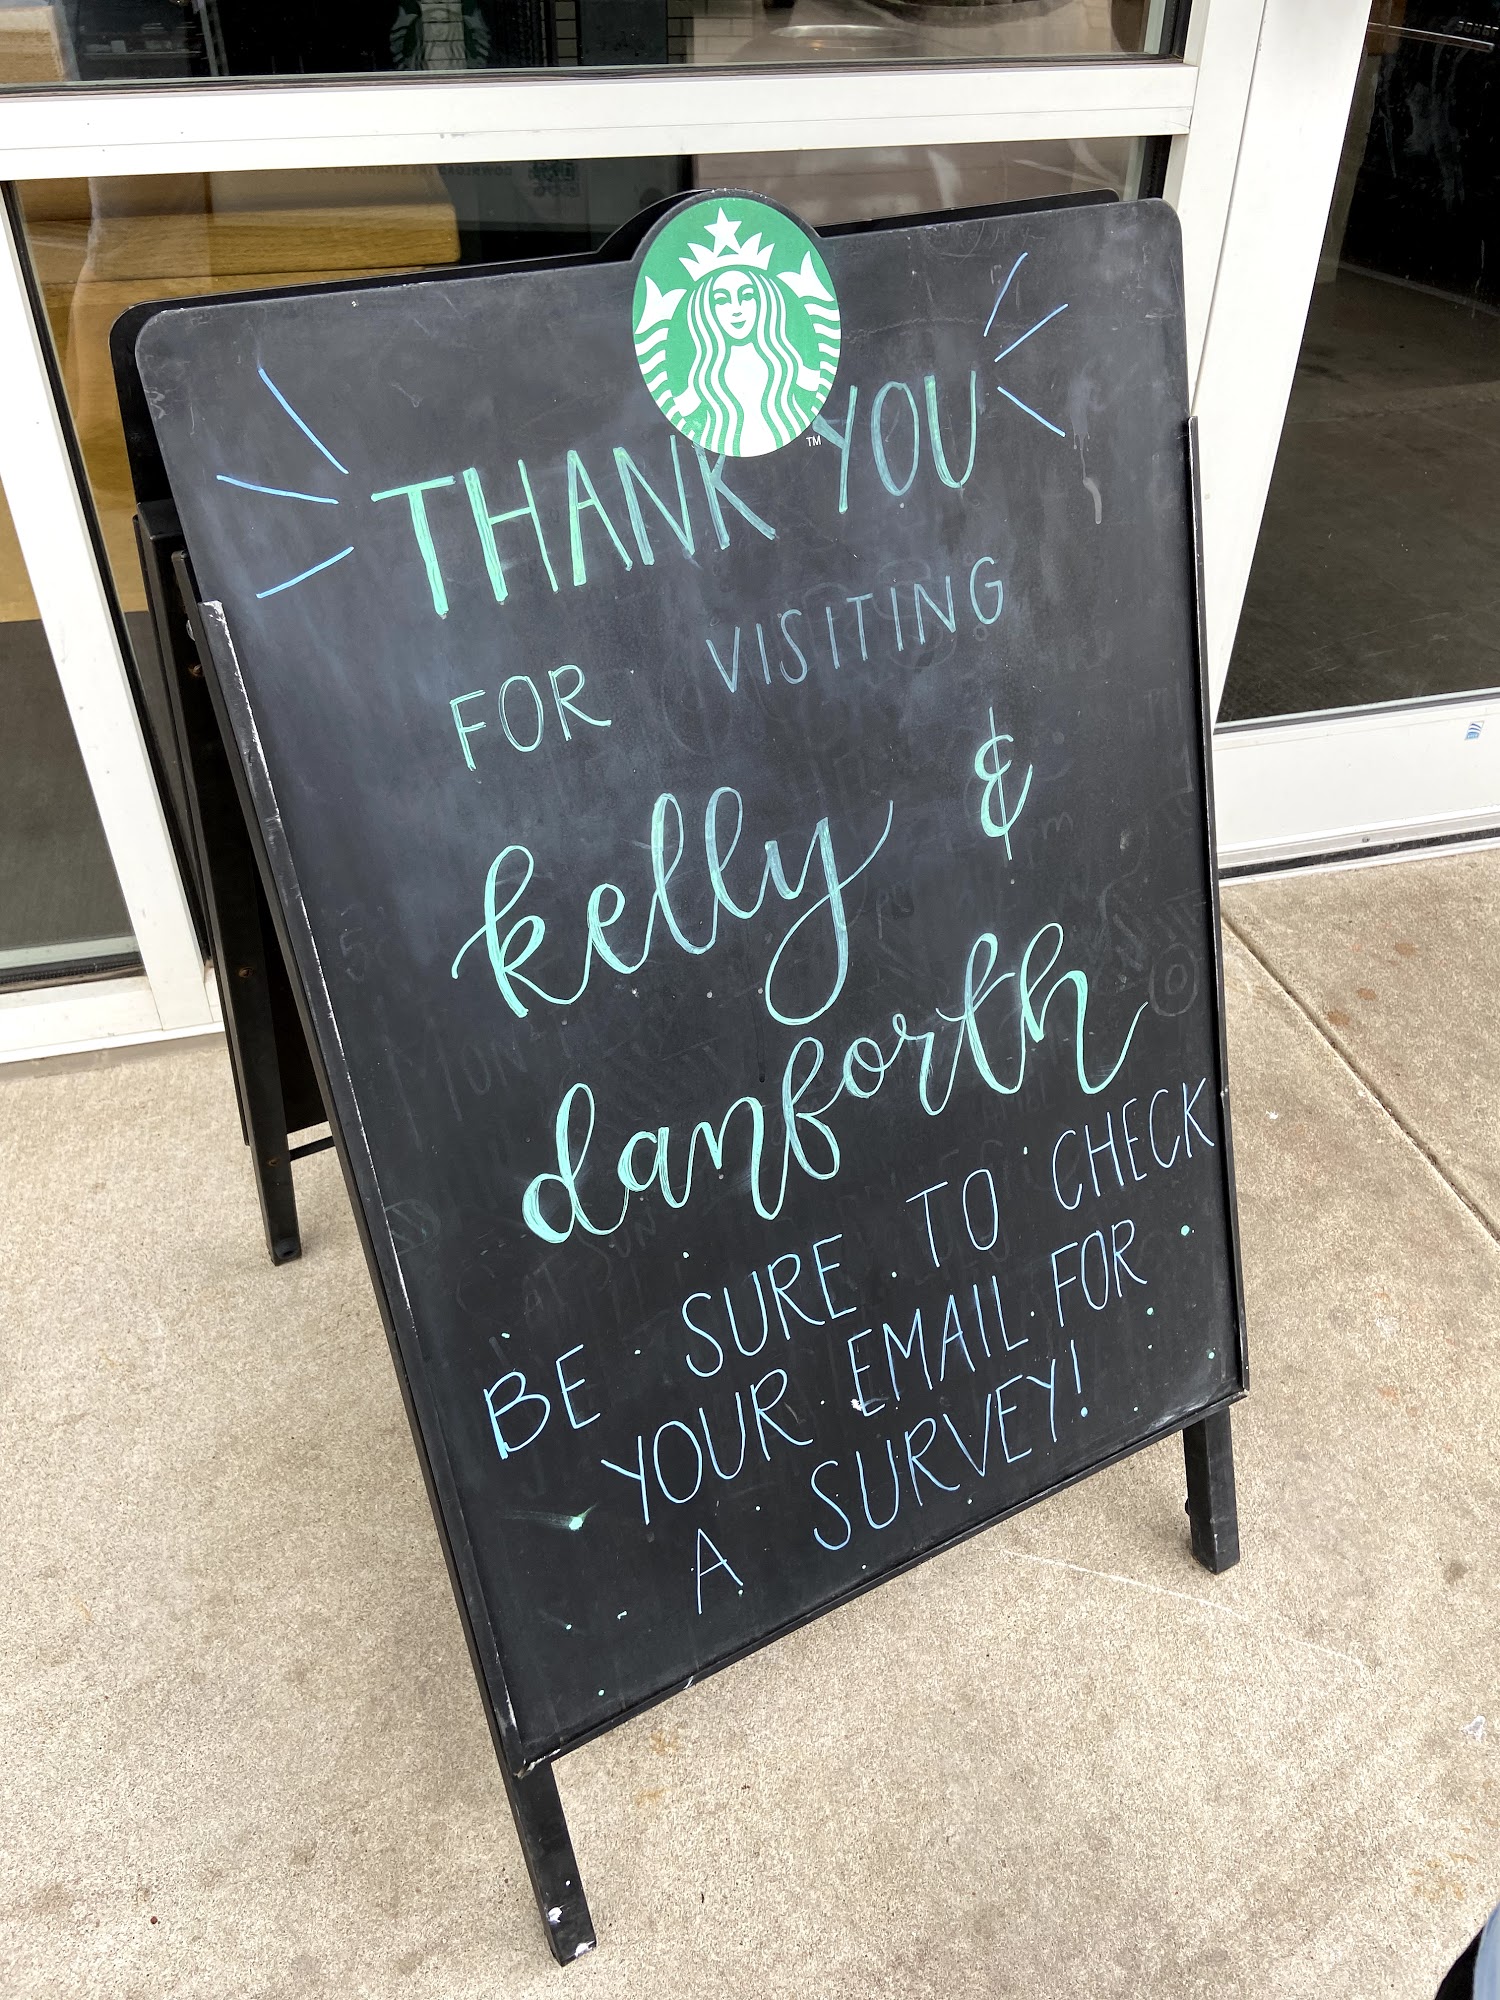 THANK YOU
FOR VISITING
kelly &
danforth
BE SURE TO CHECK
YOUR EMAIL FOR
A SURVEY!
TM